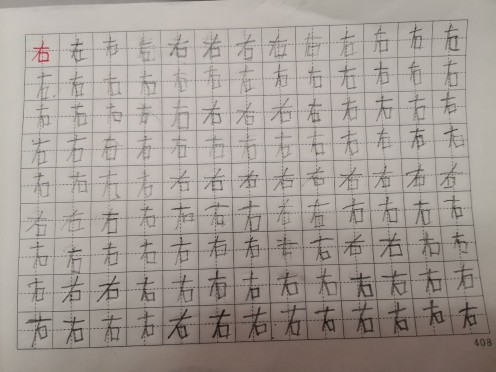 右右右右右右右右右右右右右
右右右右右右右右右右右右右
右右右右右右右右右右右右右
右右右右右右右右右右右右右
右右右右右右右右右右右右右
右右右右右右右右右右右右右
右右右右右右右右右右右右右
右右右右右右右右右右右右右
右右右右右右右右右右右右右
408